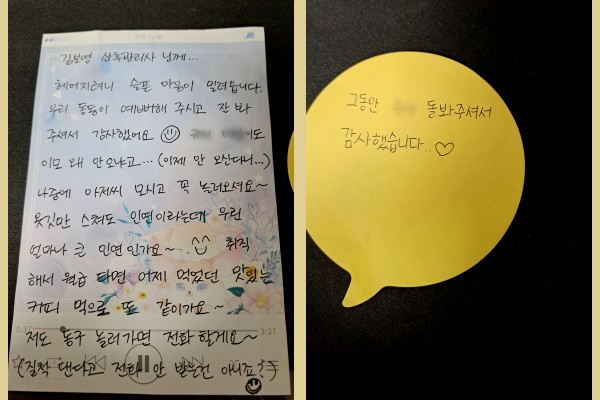 김보영 산후관리사 님께...
헤어지려니 슬픈 마음이 밀려듭니다.
우리 동동이 예뻐해 주시고 잔 봐
주셔서 감사했어요
이도
이모 왜 안오냐고... (이제 안 오신다니...)
나중에 아저씨 모시고 꼭 놀러오세요~
옷깃만 스쳐도 인연이라는데 우린
얼마나 큰 인연인가요~ 취직
해서 월급 타면 어제 먹었던 맛있는
커피 먹으로 또 같이가요~
저도 동구 놀러가면 전화 할게요~
(질척 댄다고 전화 안 받는건 아니죠?)
0:37
3:27
그동안 돌봐주셔서
감사했습니다..♡